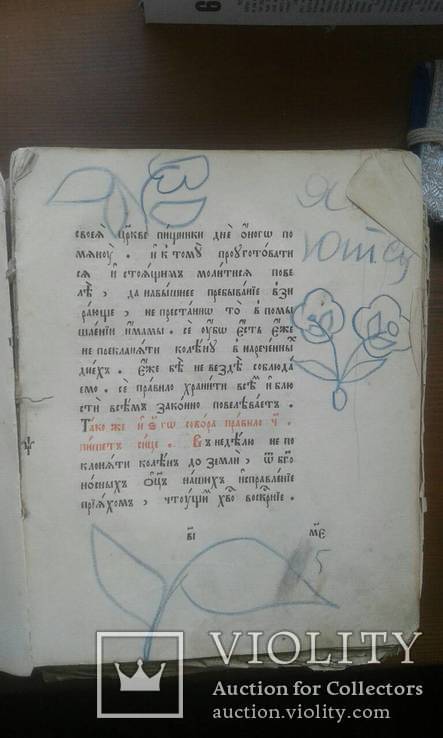 своеѧ̀ цр҃кве пи́щники дне́ о҆́ногѡ по
мѧноу̀ . и҆ к томꙋ̀ проуготовати
сѧ и҆ стоѧщимъ молитисѧ пове
лѣ̀ , да навышнее пребыва́нїе взи
рающе , не престаниѡ то̀ в помы
шле́нїи и҆́мамы . се ѹ҆́бѡ є҆́сть є҆́же
не покланѧти колѣнꙋ в нареченны́
дне́хъ . є҆́же бѣ̀ не вездѣ̀ соблюда́
емо . се правило храни́ти всѣ́ и҆ блю
сти всѣмъ законно повелѣваетъ .
Тако же и҆ ѕ҃гѡ собо́ра правило ч҃
пишетъ сице . Въ недѣлю не по
клонѧти колѣнъ до землѝ , ѿ бг҃о
но́сныхъ ѻ҆ц҃ъ нашихъ и҆справле́нїе
прїѧ́хомъ , чтоущи хв҃о воскрнїе .
в҃і
м҃є
5
Я
9
VIOLITY
Auction for Collectors
auction.violity.com